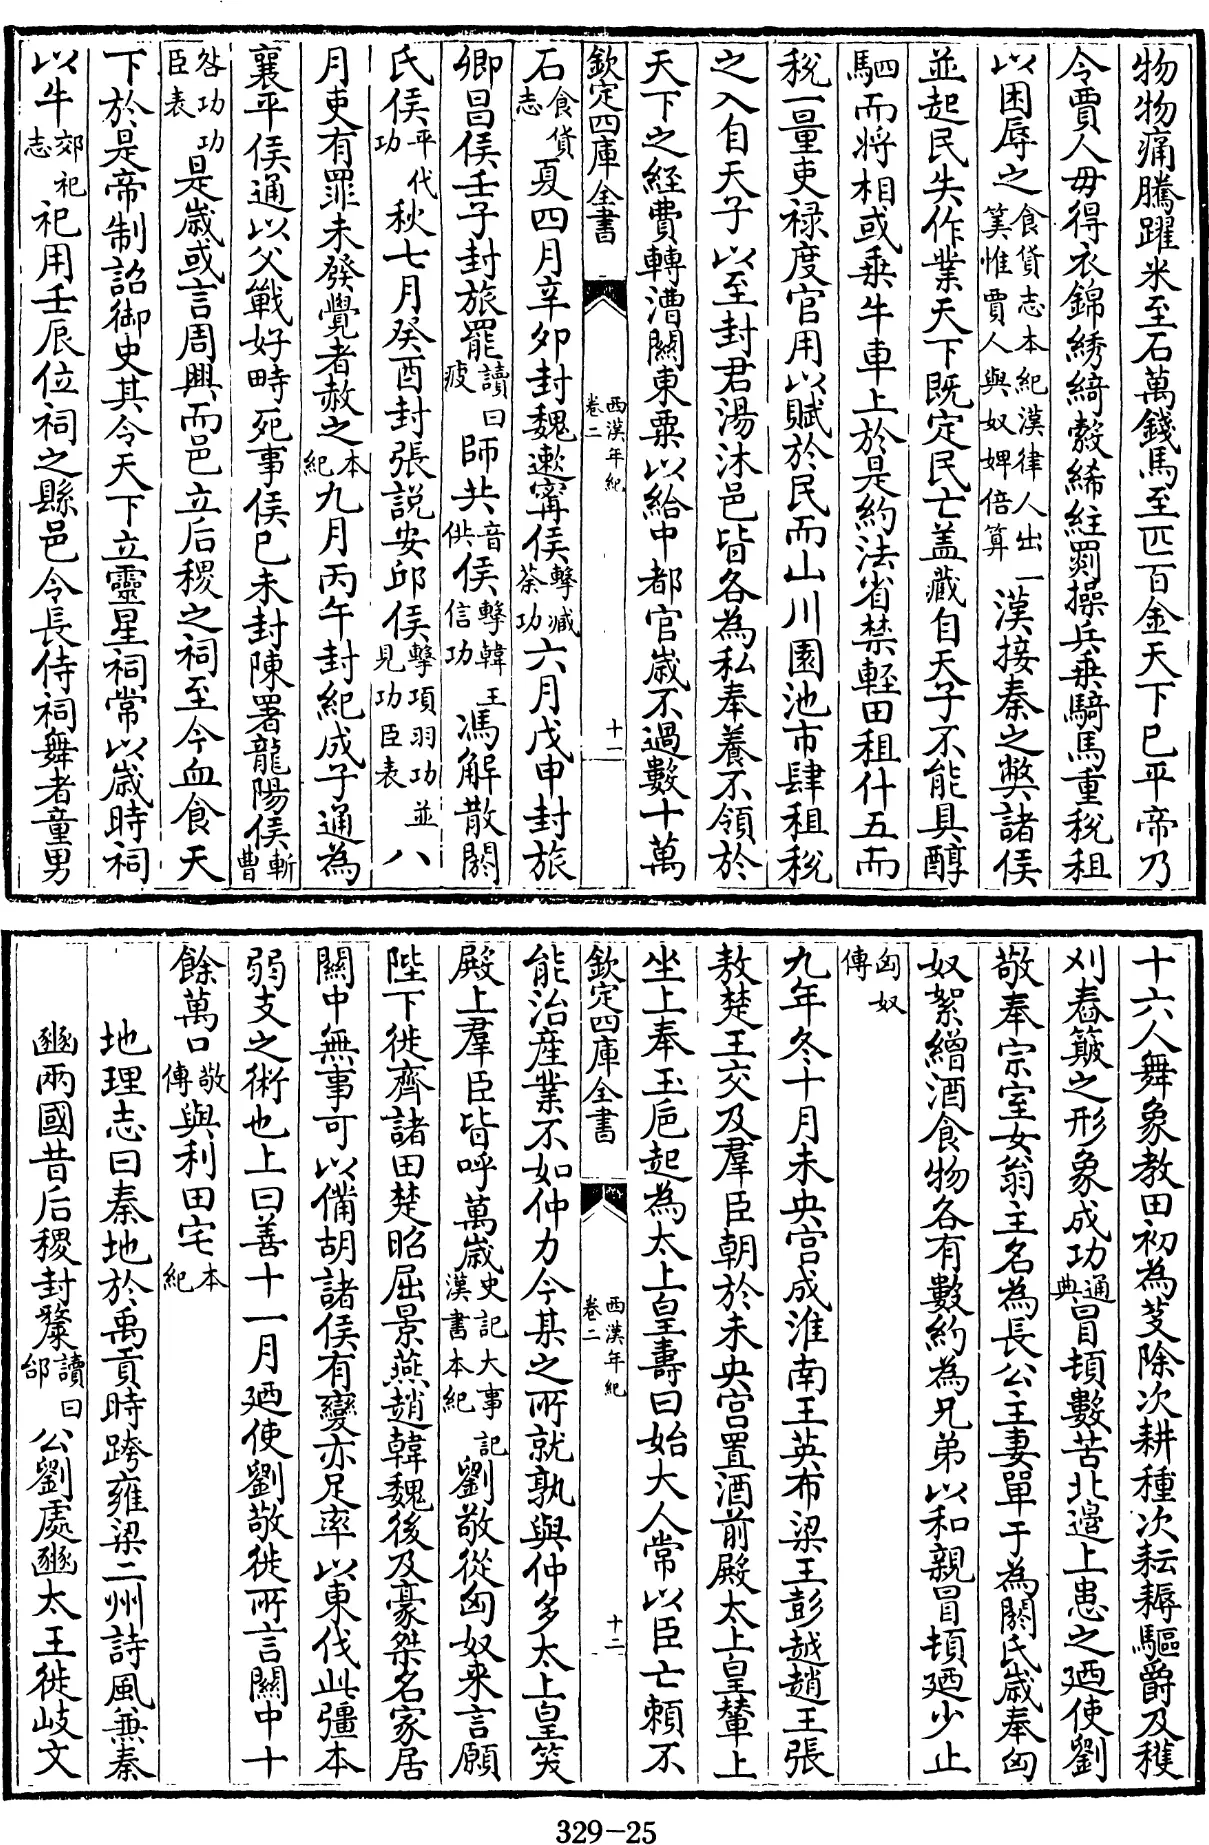 物物痛騰躍米至石萬錢馬至匹百金天下已平帝乃
令賈人毋得衣錦綉綺縠絺紵罽操兵乗騎馬重稅租
以困辱之食貨志本紀漢律人出一筭惟賈人與奴婢倍算漢接秦之獘諸侯
並起民失作業天下既定民亡盖藏自天子不能具醇
駟而將相或乗牛車上於是約法省禁輕田租什五而
稅一量吏禄度官用以賦於民而山川園池市肆租稅
之入自天子以至封君湯沐邑皆各為私奉養不領於
天下之經費轉漕關東粟以給中都官歳不過數十萬
欽定四庫全書
西漢年紀
卷二
十一
石食貨志夏四月辛夘封魏遬寗侯擊臧荼功六月戊申封旅
卿昌侯壬子封旅罷讀曰疲師共音供侯擊韓王信功馮解散閼
氏侯平代功秋七月癸酉封張說安邱侯擊項羽功並見功臣表八
月吏有罪未發覺者赦之本紀九月丙午封紀成子通為
襄平侯通以父戰好畤死事侯已未封陳署龍陽侯斬曹
咎功功臣表是歳或言周興而邑立后稷之祠至今血食天
下於是帝制詔御史其令天下立靈星祠常以歳時祠
以牛郊祀志祀用壬辰位祠之縣邑令長侍祠舞者童男
十六人舞象教田初為芟除次耕種次耘耨驅爵及穫
刈舂簸之形象成功通典冒頓數苦北邉上患之廼使劉
敬奉宗室女翁主名為長公主妻單于為閼氏歳奉匈
奴絮繒酒食物各有數約為兄弟以和親冒頓廼少止
匈奴傳
九年冬十月未央宫成淮南王英布梁王彭越趙王張
敖楚王交及羣臣朝於未央宫置酒前殿太上皇輦上
坐上奉玉巵起為太上皇壽曰始大人常以臣亡賴不
欽定四庫全書
西漢年紀
卷二
十二
能治産業不如仲力今某之所就孰與仲多太上皇笑
殿上羣臣皆呼萬歳史記大事記漢書本紀劉敬從匈奴来言願
陛下徙齊諸田楚昭屈景燕趙韓魏後及豪桀名家居
關中無事可以備胡諸侯有變亦足率以東伐此彊本
弱支之術也上曰善十一月廼使劉敬徙所言關中十
餘萬口敬傳與利田宅本紀
地理志曰秦地於禹貢時跨雍梁二州詩風兼秦
豳兩國昔后稷封斄讀曰邰公劉處豳太王徙岐文
329-25